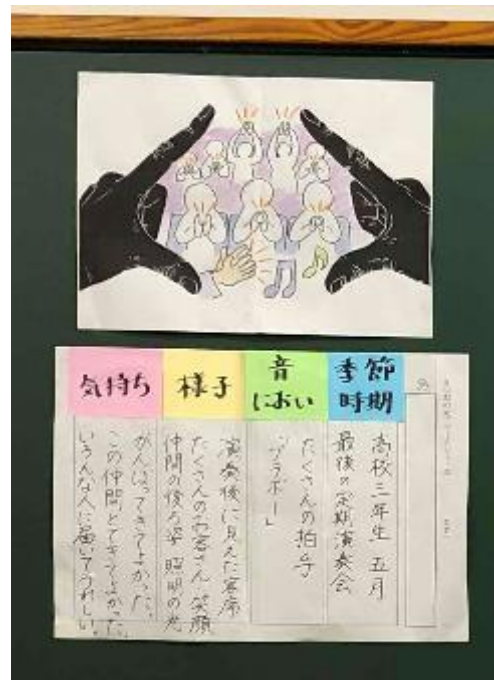 季節
時期
高校三年生 五月
最後の定期演奏会
音
におい
たくさんの拍手
「ブラボー」
様子
演奏後に見えた客席
たくさんのお客さん 笑顔
仲間の後ろ姿 照明の光
気持ち
がんばってきてよかった。
この仲間とできてよかった。
いろんな人に届いてうれしい。